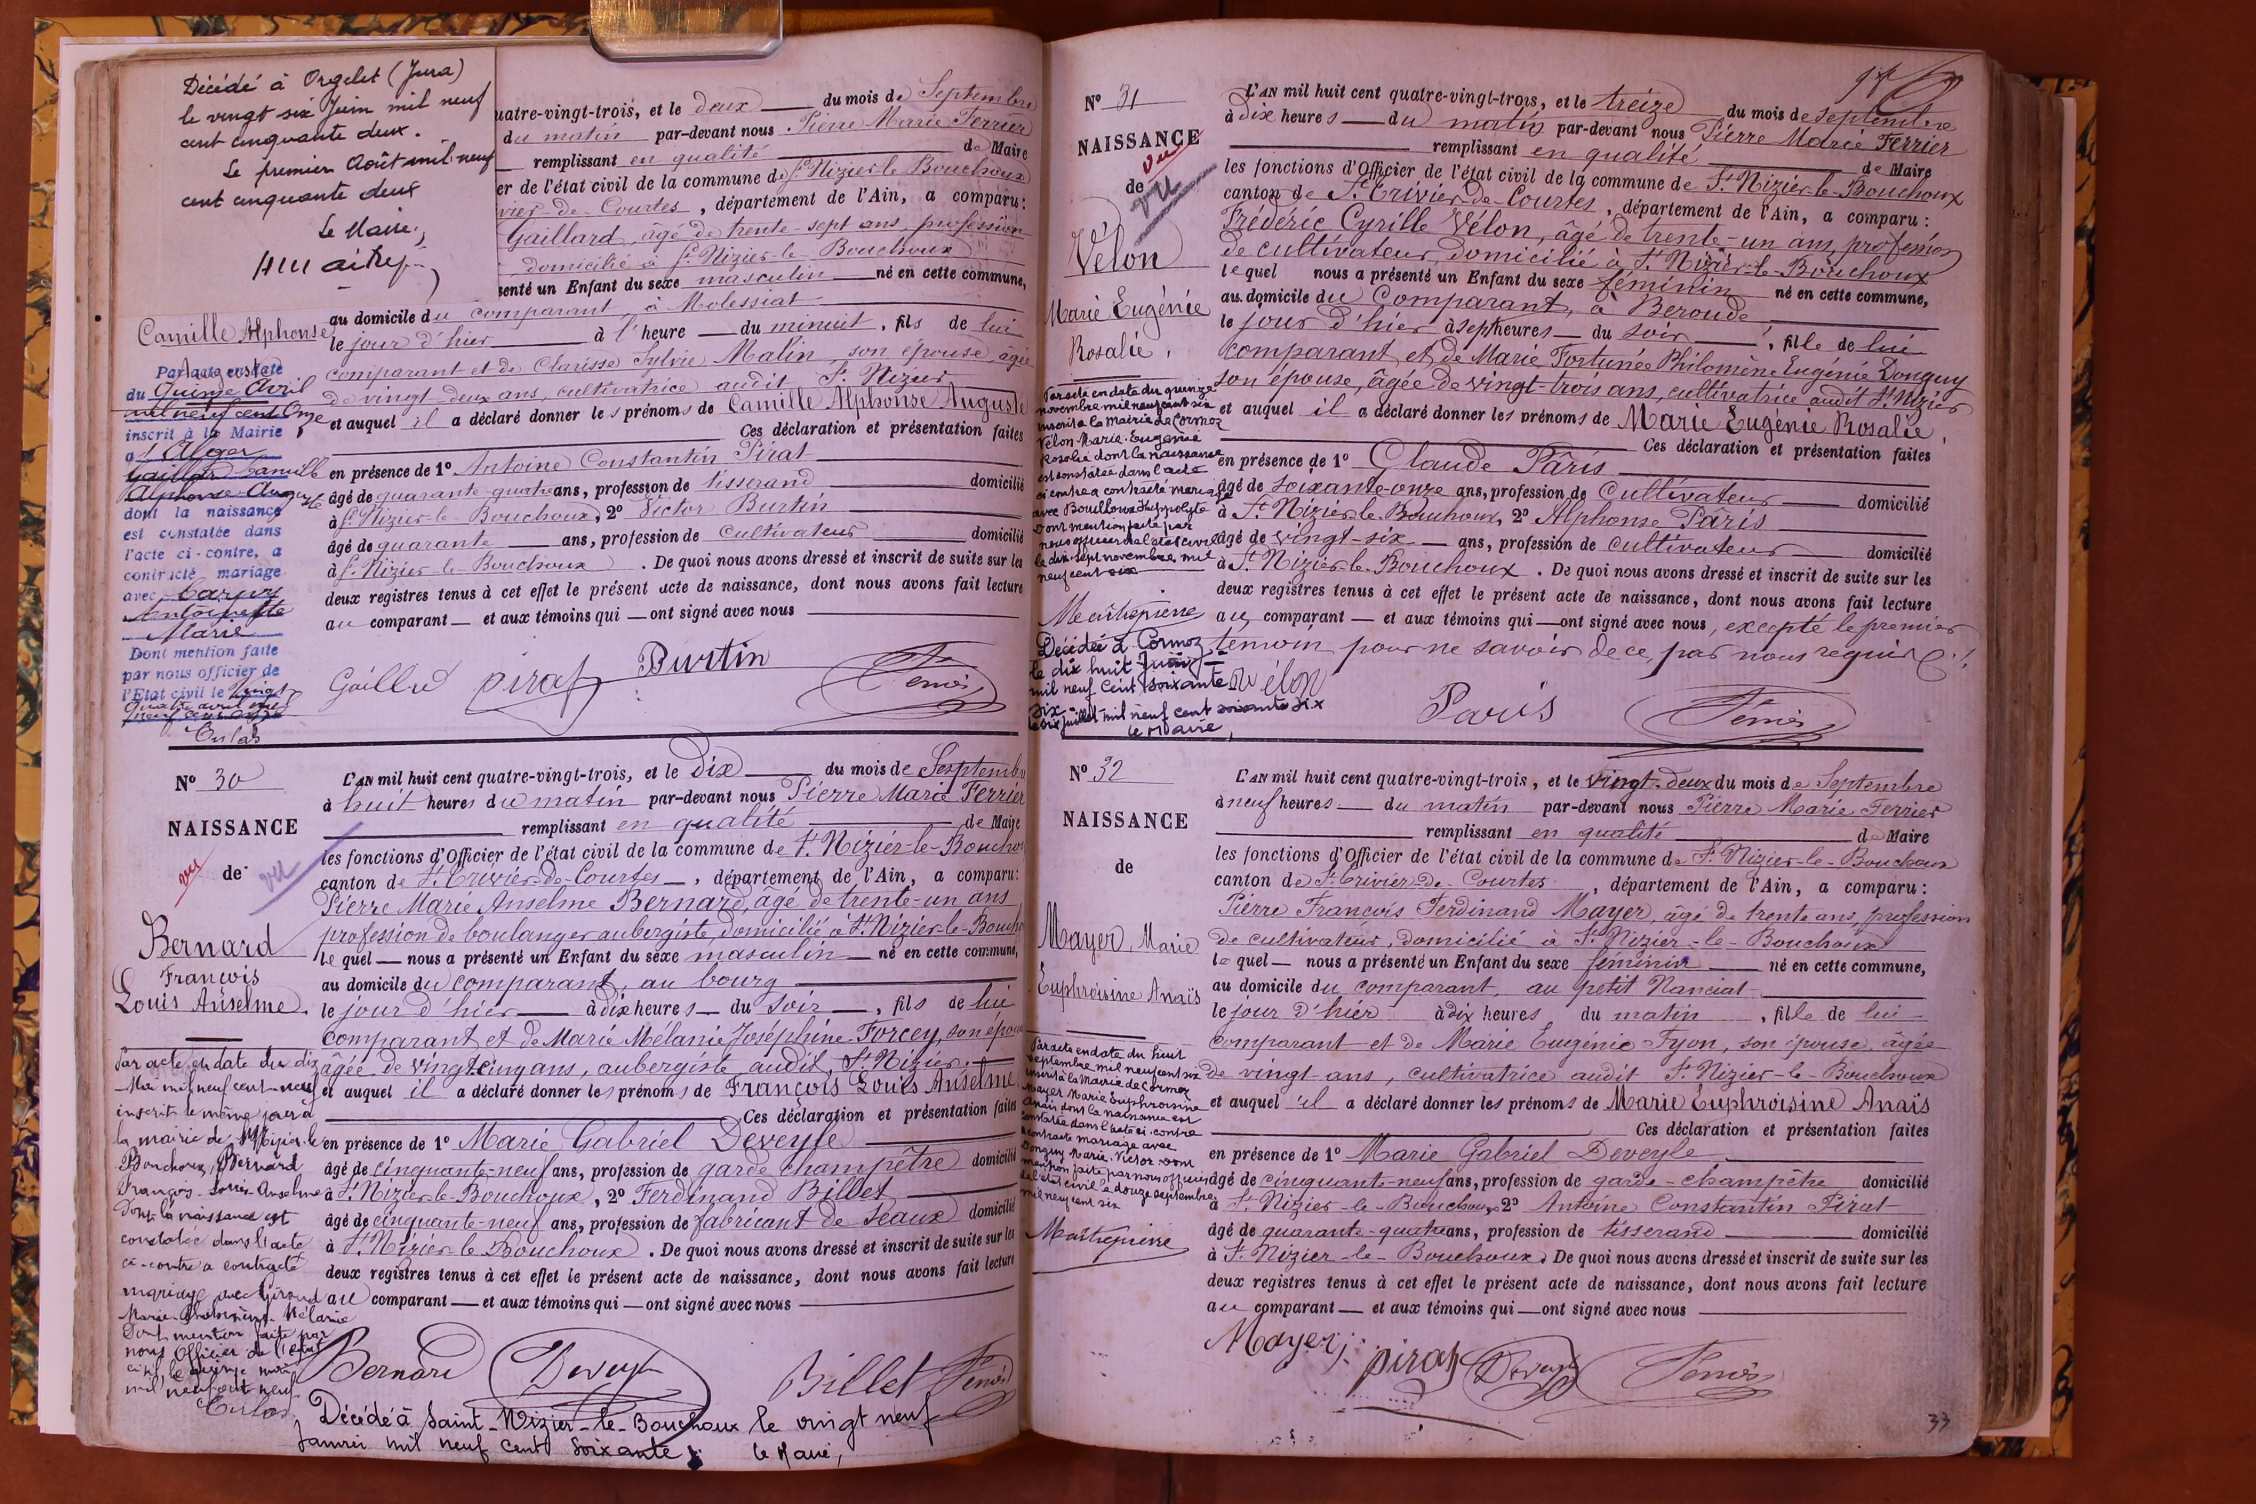 Décédé à Orgelet (Jura)
le vingt six Juin mil neuf
cent cinquante deux.
Le premier Août mil neuf
cent cinquante deux
Le Maire,
uatre-vingt-trois, et le deux du mois de Septembre
du matin par-devant nous Pierre Marie Ferrier
remplissant en qualité de Maire
er de l'état civil de la commune de St Nizier-le-Bouchoux
vier-de-Courtes, département de l'Ain, a comparu:
Gaillard, âgé de trente-sept ans, profession
domicilié à St Nizier-le Bouchoux
senté un Enfant du sexe masculin né en cette commune,
au domicile du comparant, à Molessiat
Camille Alphonse
le jour d'hier à l'heure du minuit, fils de lui
comparant et de Clarisse Sylvie Malin, son épouse, âgée
de vingt-deux ans, cultivatrice audit St Nizier
et auquel il a déclaré donner les prénoms de Camille Alphonse Auguste
Ces déclaration et présentation faites
en présence de 1° Antoine Constantin Pirat
âgé de quarante-quatre ans, profession de tisserand domicilié
à St Nizier-le Bouchoux, 2° Victor Burtin
âgé de quarante ans, profession de cultivateur domicilié
à St Nizier-le-Bouchoux. De quoi nous avons dressé et inscrit de suite sur les
deux registres tenus à cet effet le présent acte de naissance, dont nous avons fait lecture
au comparant et aux témoins qui ont signé avec nous
Par acte en date
du Quinze Avril
mil neuf cent Onze
inscrit à la Mairie
d'Alger
Gaillard Camille
Alphonse Auguste
dont la naissance
est constatée dans
l'acte ci-contre, a
contracté mariage
avec
Antoinette
Marie
Dont mention faite
par nous officier de
l'Etat civil le Vingt
Quatre avril mil
neuf cent onze
Gaillard Pirat Burtin Ferrier
N° 30
NAISSANCE
vu de vu
Bernard
François
Louis Anselme.
L'AN mil huit cent quatre-vingt-trois, et le Dix du mois de Septembre
à huit heures du matin par-devant nous Pierre Marie Ferrier
remplissant en qualité de Maire
les fonctions d'Officier de l'état civil de la commune de St Nizier-le-Bouchoux
canton de St Trivier-de-Courtes, département de l'Ain, a comparu:
Pierre Marie Anselme Bernard, âgé de trente-un ans
profession de boulanger aubergiste, domicilié à St Nizier-le-Bouchoux
lequel nous a présenté un Enfant du sexe masculin né en cette commune,
au domicile du comparant, au bourg
le jour d'hier à dix heures du soir, fils de lui
comparant et de Marie Mélanie Joséphine Forcey, son épouse
âgée de vingt-cinq ans, aubergiste audit St Nizier.
et auquel il a déclaré donner les prénoms de François Louis Anselme
Ces déclaration et présentation faites
en présence de 1° Marie Gabriel Deveyle
âgé de cinquante-neuf ans, profession de garde champêtre domicilié
à St Nizier-le-Bouchoux, 2° Ferdinand Billet
âgé de cinquante-neuf ans, profession de fabricant de seaux domicilié
à St Nizier-le Bouchoux. De quoi nous avons dressé et inscrit de suite sur les
deux registres tenus à cet effet le présent acte de naissance, dont nous avons fait lecture
au comparant et aux témoins qui ont signé avec nous
Par acte en date du dix
Mai mil neuf cent neuf
inscrit le même jour à
la mairie de St Nizier-le
Bouchoux, Bernard
François-Louis-Anselme
dont la naissance est
constatée dans l'acte
ci-contre a contracté
mariage avec Giroud
Marie Mélanie
Dont mention faite par
nous Officier de l'état
civil, le quinze mai
mil neuf cent neuf.
Bernard Deveyle Billet Ferrier
Décédé à Saint-Nizier-le-Bouchoux le vingt neuf
Janvier mil neuf cent soixante
le Maire,
N° 31
NAISSANCE
vu
de
vu
Vélon
Marie Eugénie
Rosalie,
L'AN mil huit cent quatre-vingt-trois, et le treize du mois de Septembre
à dix heures du matin par-devant nous Pierre Marie Ferrier
remplissant en qualité de Maire
les fonctions d'Officier de l'état civil de la commune de St Nizier-le-Bouchoux
canton de St Trivier-de-Courtes, département de l'Ain, a comparu:
Frédéric Cyrille Vélon, âgé de trente-un ans, profession
de cultivateur, domicilié à St Nizier-le-Bouchoux
lequel nous a présenté un Enfant du sexe féminin né en cette commune,
au domicile du comparant, à Beroude
le jour d'hier à sept heures du soir, fille de lui
comparant et de Marie Fortunée Philomène Eugénie Donguy
son épouse, âgée de vingt-trois ans, cultivatrice audit St Nizier
et auquel il a déclaré donner les prénoms de Marie Eugénie Rosalie,
Ces déclaration et présentation faites
en présence de 1° Claude Pâris
âgé de soixante-onze ans, profession de cultivateur domicilié
à St Nizier-le Bouchoux, 2° Alphonse Pâris
âgé de vingt-six ans, profession de cultivateur domicilié
à St Nizier-le-Bouchoux. De quoi nous avons dressé et inscrit de suite sur les
deux registres tenus à cet effet le présent acte de naissance, dont nous avons fait lecture
au comparant et aux témoins qui ont signé avec nous, excepté le premier
témoin pour ne savoir de ce par nous requis
Par acte en date du quinze
novembre mil neuf cent six
inscrit à la mairie de Cormoz
Vélon Marie-Eugénie
Rosalie dont la naissance
est constatée dans l'acte
ci contre a contracté mariage
avec Bouilloux Hippolyte
dont mention faite par
nous officier de l'état civil
le dix-sept novembre mil
neuf cent six
Décédée à Cormoz
le dix huit Juin
mil neuf cent soixante
six
le six juillet mil neuf cent soixante six
le Maire,
Vélon Paris Ferrier
N° 32
NAISSANCE
de
Mayer, Marie
Euphroisine Anaïs
L'AN mil huit cent quatre-vingt-trois, et le vingt-deux du mois de Septembre
à neuf heures du matin par-devant nous Pierre Marie Ferrier
remplissant en qualité de Maire
les fonctions d'Officier de l'état civil de la commune de St Nizier-le-Bouchoux
canton de St Trivier-de-Courtes, département de l'Ain, a comparu:
Pierre François Ferdinand Mayer, âgé de trente ans, profession
de cultivateur, domicilié à St Nizier-le-Bouchoux
lequel nous a présenté un Enfant du sexe féminin né en cette commune,
au domicile du comparant, au petit Nanciat
le jour d'hier à dix heures du matin, fille de lui
comparant et de Marie Eugénie Fyon, son épouse, âgée
de vingt-ans, cultivatrice audit St Nizier-le-Bouchoux
et auquel il a déclaré donner les prénoms de Marie Euphroisine Anaïs
Ces déclaration et présentation faites
en présence de 1° Marie Gabriel Deveyle
âgé de cinquante-neuf ans, profession de garde-champêtre domicilié
à St Nizier-le-Bouchoux, 2° Antoine Constantin Pirat
âgé de quarante-quatre ans, profession de tisserand domicilié
à St Nizier-le-Bouchoux. De quoi nous avons dressé et inscrit de suite sur les
deux registres tenus à cet effet le présent acte de naissance, dont nous avons fait lecture
au comparant et aux témoins qui ont signé avec nous
Par acte en date du huit
septembre mil neuf cent six
inscrit à la Mairie de Cormoz
Mayer Marie Euphroisine
Anaïs dont la naissance est
constatée dans l'acte ci-contre
a contracté mariage avec
Donguy Marie-Victor dont
mention faite par nous officier
de l'état civil le douze septembre
mil neuf cent six
Mayer Pirat Deveyle Ferrier
33